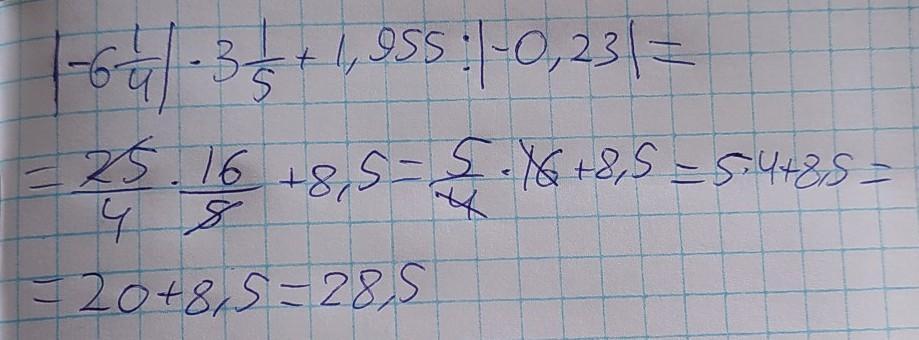 |-6 1/4| · 3 1/5 + 1,955 : |-0,23| =
= 25/4 · 16/5 + 8,5 = 5/4 · 16 + 8,5 = 5·4+8,5 =
= 20+8,5 = 28,5